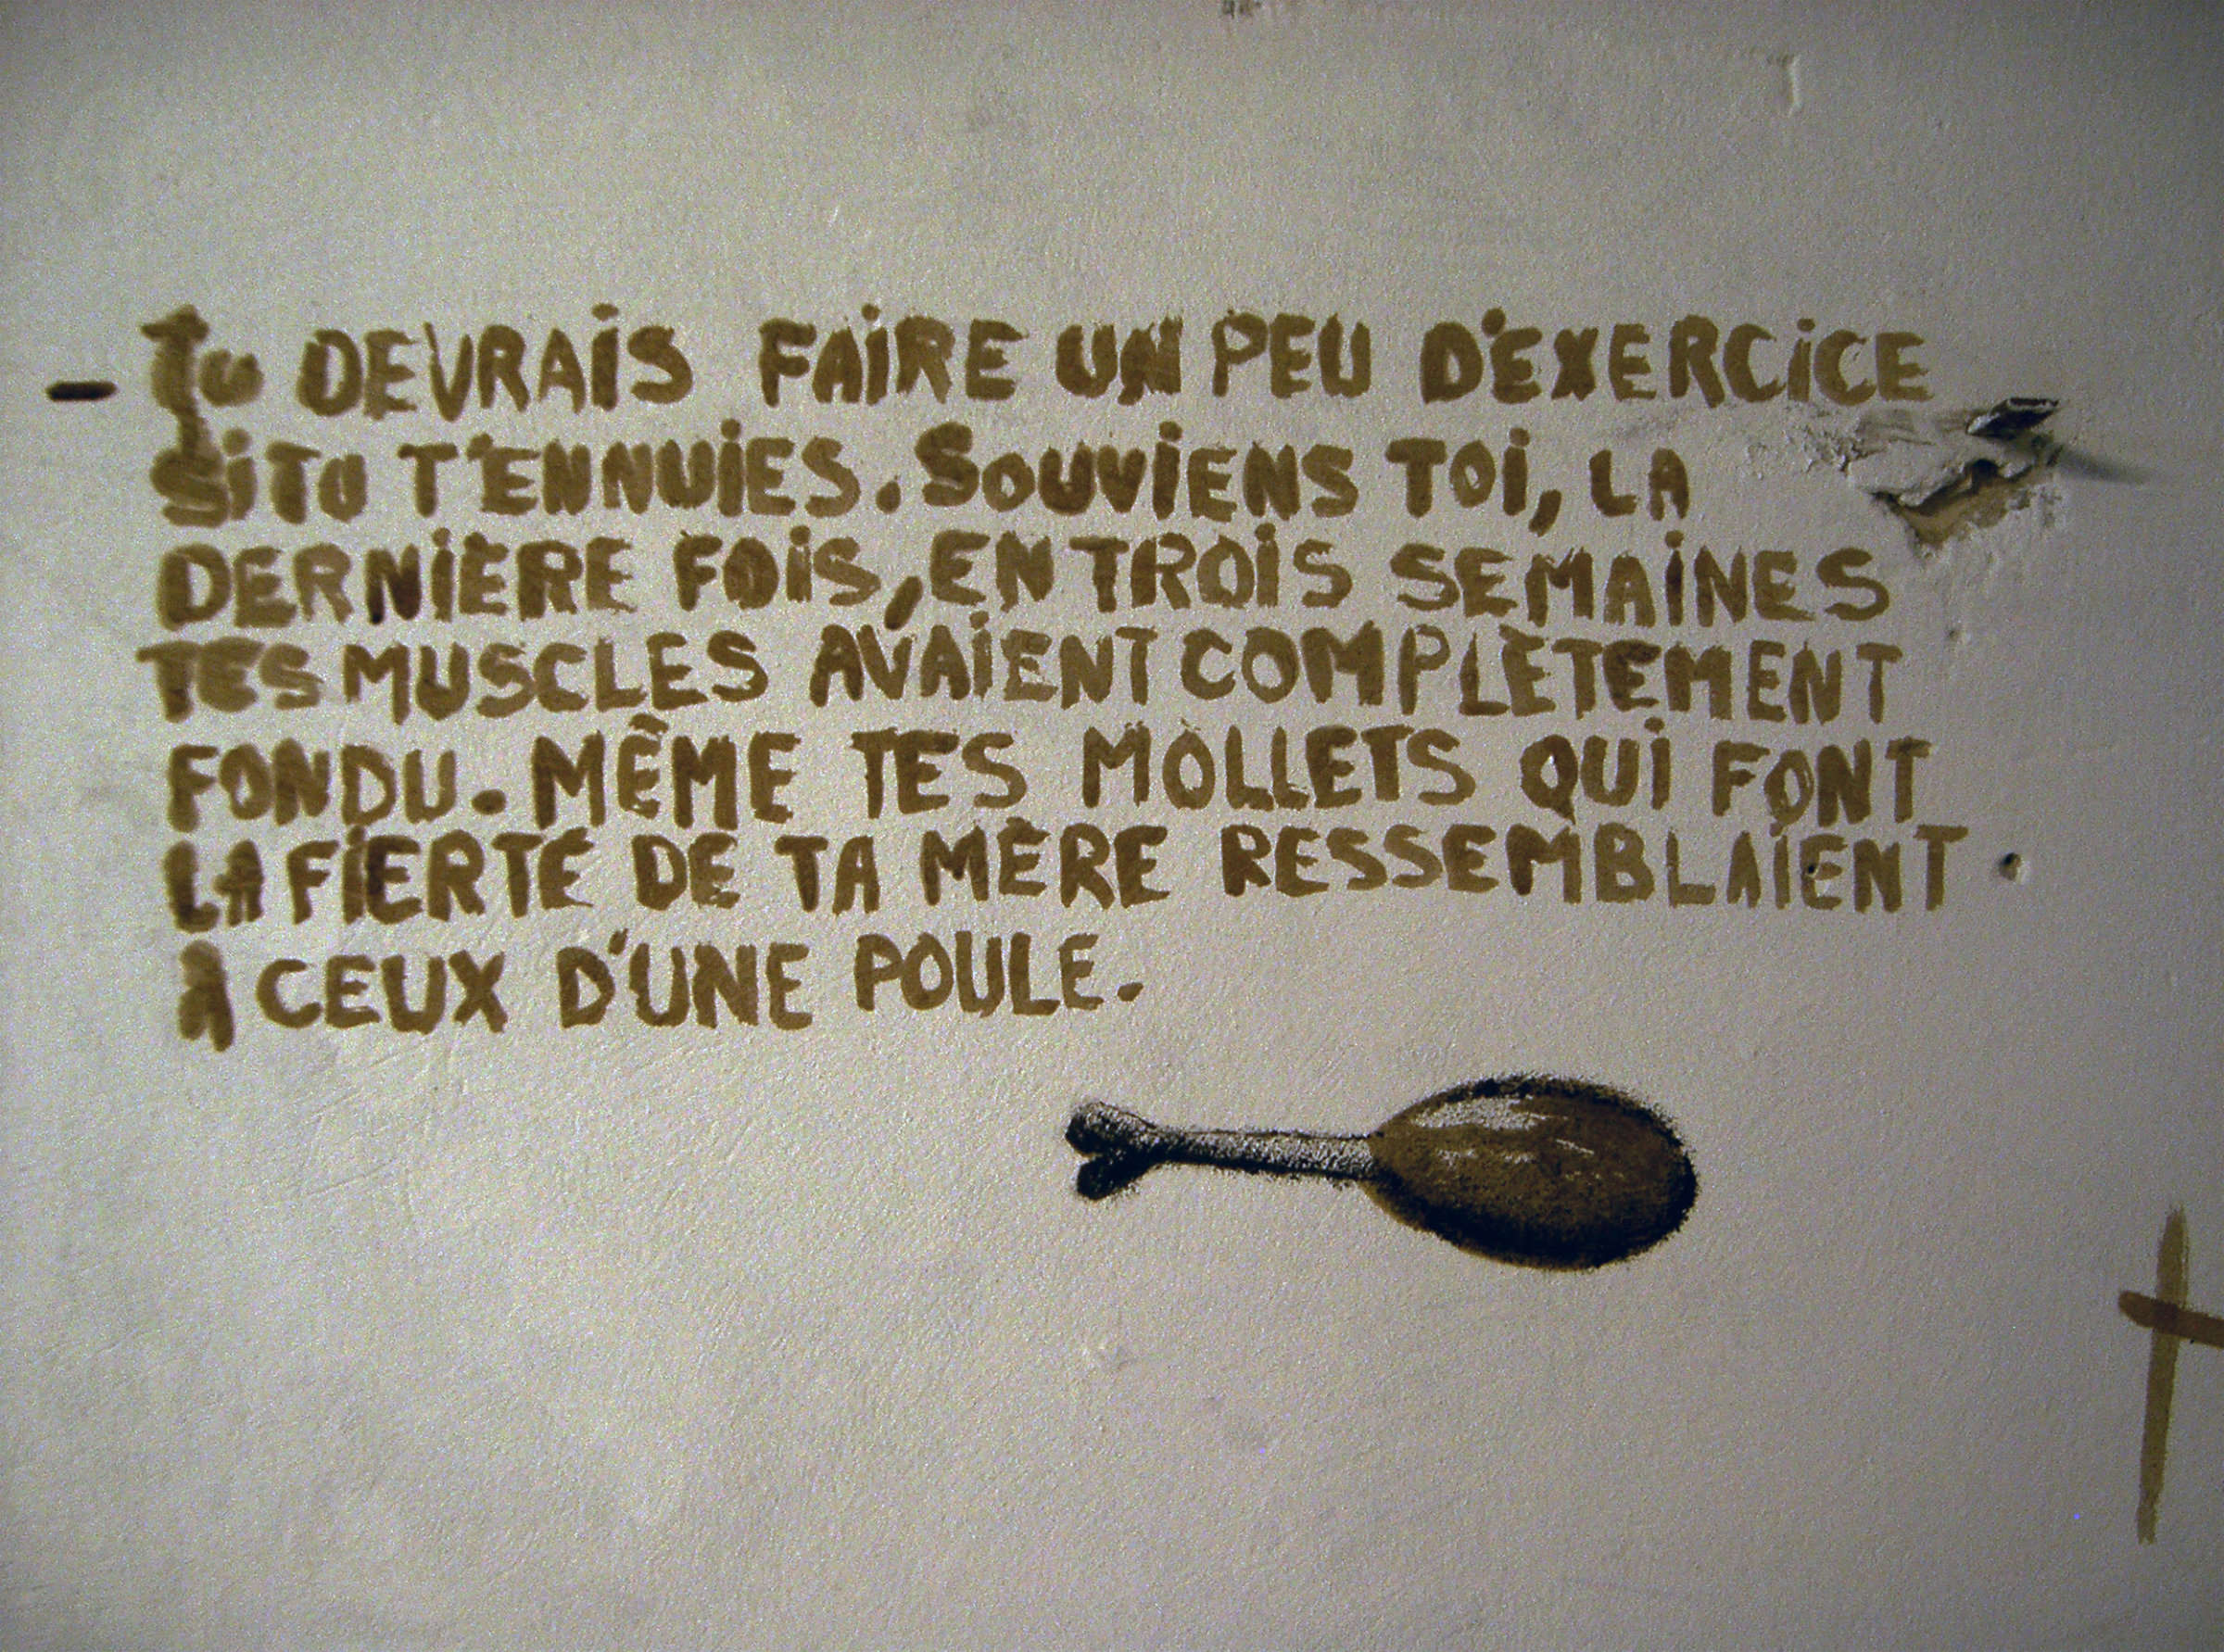 - TU DEVRAIS FAIRE UN PEU D'EXERCICE
SI TU T'ENNUIES. SOUVIENS TOI, LA
DERNIÈRE FOIS, EN TROIS SEMAINES
TES MUSCLES AVAIENT COMPLÈTEMENT
FONDU. MÊME TES MOLLETS QUI FONT
LA FIERTÉ DE TA MÈRE RESSEMBLAIENT
À CEUX D'UNE POULE.